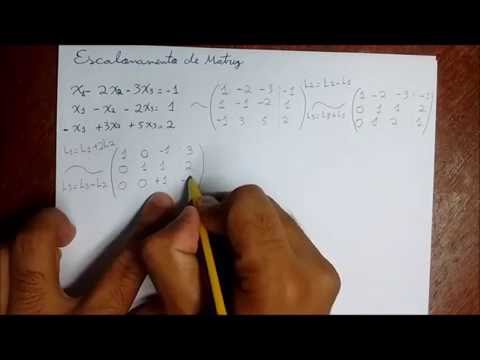 Escalonamento de Matriz
x1 - 2x2 - 3x3 = -1
x1 - x2 - 2x3 = 1
-x1 + 3x2 + 5x3 = 2
~
1 -2 -3 -1
1 -1 -2 1
-1 3 5 2
L2 = L2 - L1
L3 = L3 + L1
1 -2 -3 -1
0 1 1 2
0 1 2 1
L1 = L1 + 2L2
L3 = L3 - L2
1 0 -1 3
0 1 1 2
0 0 +1 -